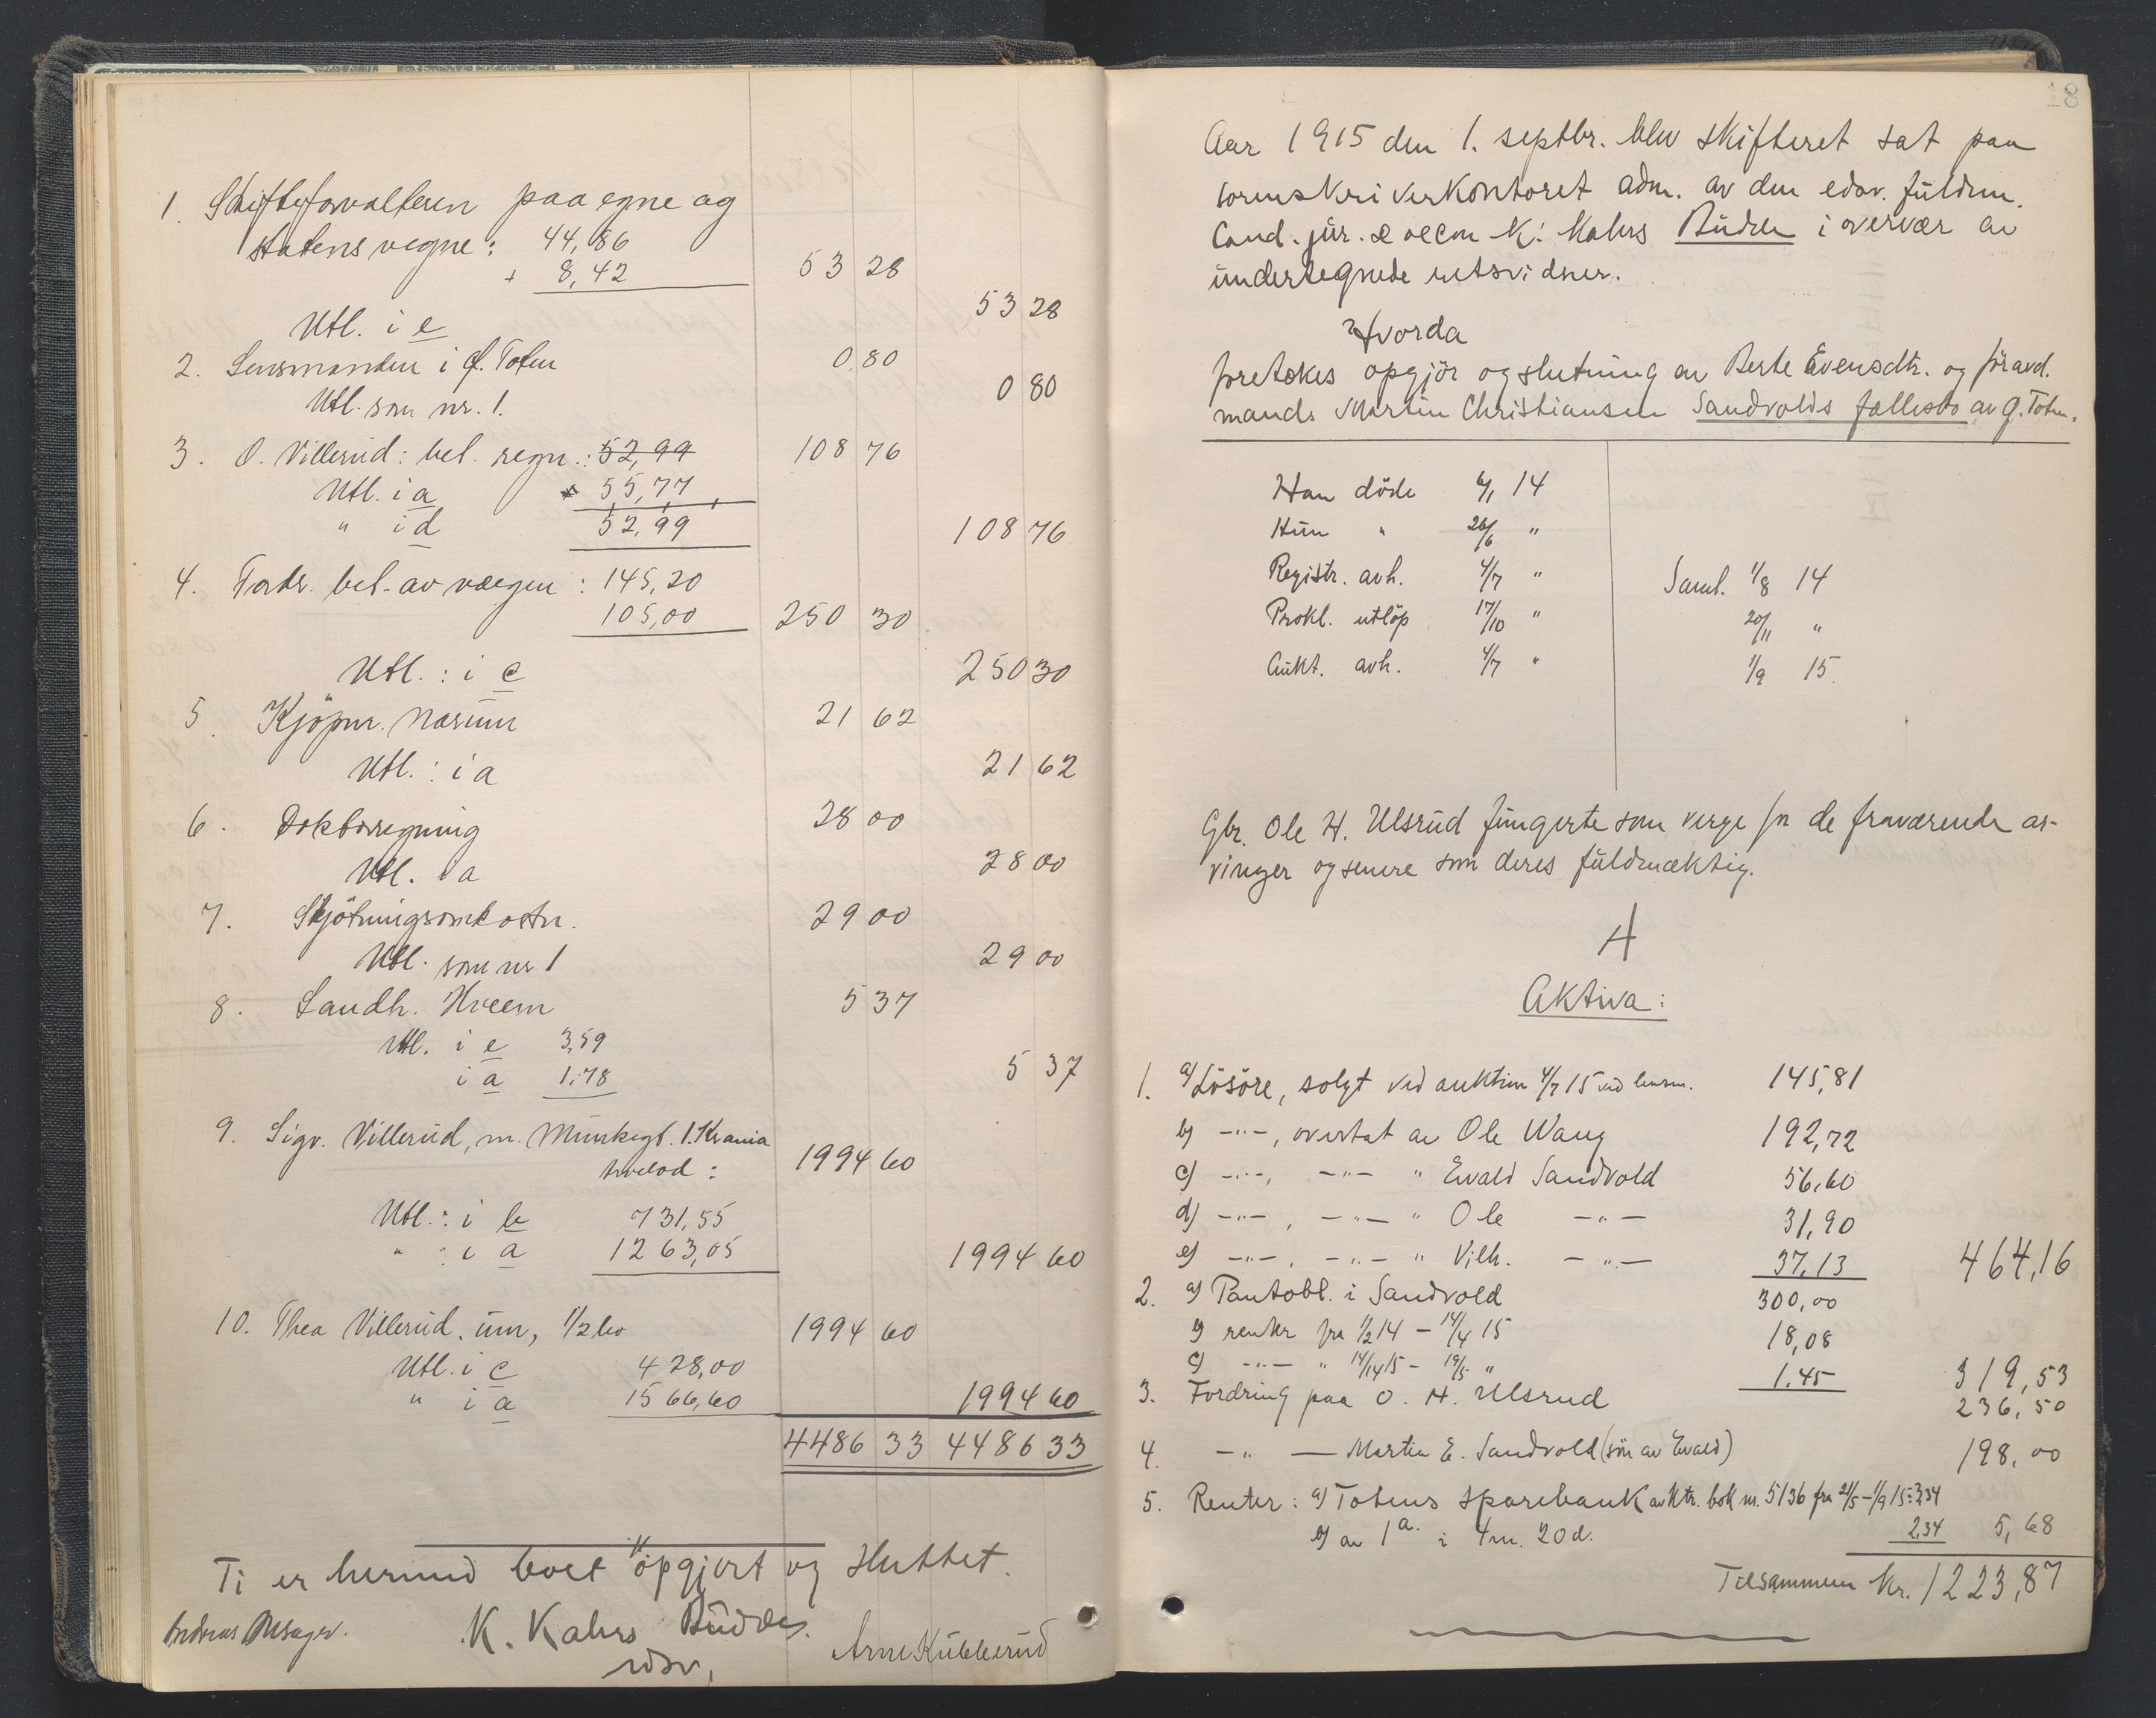 1. Skifteforvalteren paa egne og
statens vegne: 44,86
+ 8,42 53 28
Utl. i e 53 28
2. Lensmanden i Ø. Toten 0,80
Utl. som nr. 1. 0 80
3. O. Villerud: bet. regn.: 52,99 108 76
Utl. i a 55,77
" i d 52,99 108 76
4. Fordr. bet. av værgen: 145,20
105,00 250 30
Utl.: i c 250 30
5. Kjøpm. Narum 21 62
Utl.: i a 21 62
6. Doktorregning 28 00
Utl. i a 28 00
7. Skjøtningsomkostn. 29 00
Utl. som nr 1 29 00
8. Landh. Kveem 5 37
Utl. i e 3,59
i a 1,78 5 37
9. Sigv. Villerud, m. Munkegt. 1. Krania
hvelod: 1994 60
Utl.: i b 731,55
" : i a 1263,05 1994 60
10. Thea Villerud, um, 1/2 lo 1994 60
Utl. i c 428,00
" i a 1566,60 1994 60
4486 33 4486 33
Ti er hermed boet opgjort og sluttet.
K. Kahrs Budde
edsv.
Arne Kubberud
18
Aar 1915 den 1. septbr. blev skifteret sat paa
sorenskriverkontoret adm. av den edsv. fuldm.
Cand. jur. & oecon K. Kahrs Budde i overvær av
undertegnede retsvidner.
Hvorda
foretokes opgjør og slutning av Berte Evensdtr. og føravd.
mands Martin Christiansen Sandvolds fællesbo av Ø. Toten.
Han døde 6/1 14
Hun " 26/6 "
Registr. avh. 4/7 " Saml. 1/8 14
Prokl. utløp 17/10 " 20/11 "
Aukt. avh. 4/7 " 1/9 15.
Gbr. Ole H. Ulsrud fungerte som verge for de fraværende ar-
vinger og senere som deres fuldmæktig.
A
Aktiva:
1. a) Løsøre, solgt ved auktion 4/7 15 ved lensm. 145,81
b) -"-, overtat av Ole Waug 192,72
c) -"-, -"- " Evald Sandvold 56,60
d) -"-, -"- " Ole -"- 31,90
e) -"-, -"- " Vilh. -"- 37,13 464,16
2. a) Pantobl. i Sandvold 300,00
b) renter fra 1/2 14 - 14/4 15 18,08
c) -"- " 14/4 15 - 19/5 " 1,45 319,53
3. Fordring paa O. H. Ulsrud 236,50
4. -"- Martin E. Sandvold (søn av Evald) 198,00
5. Renter: a) Totens sparebank avktr. bok nr. 5136 fra 21/5 - 1/9 15 = 3,34
b) av 1 a. i 4 m. 20 d. 2,34 5,68
Tilsammen kr. 1223,87